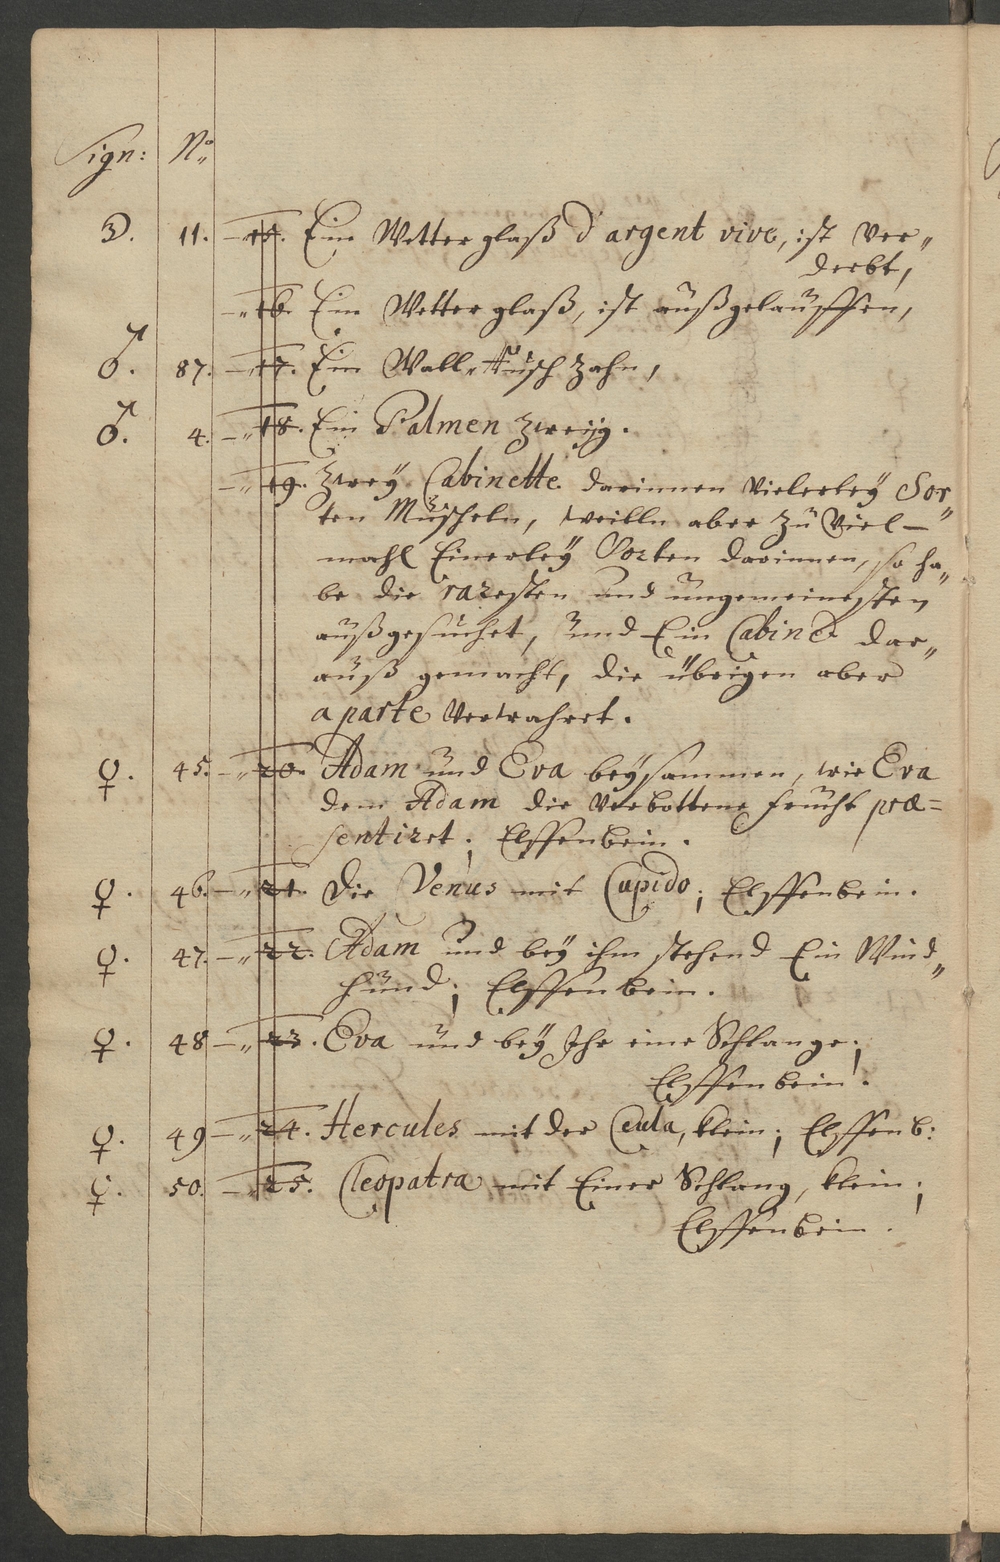 Sign: No.
☽. 11. — 15. Ein Wetterglaß d'argent vive, ist ver„
derbt,
—„ 16. Ein Wetterglaß, ist außgelauffen,
♂. 87. — 17. Ein Wall-Fisch Zahn,
♂. 4. —„ 18. Ein Palmen Zweyg.
—„ 19. Zwey Cabinette darinnen vielerley Sor„
ten Muscheln, weilln aber zu viel—
mahl Einerley Sorten darinnen, so ha„
be die raresten und ungemeinesten
außgesuchet, und Ein Cabinet dar„
auß gemacht, die übrigen aber
aparte verwahret.
♀. 45. —„ 20. Adam und Eva beysammen, wie Eva
dem Adam die verbottene frucht præ=
sentiret; Elffenbein.
♀. 46. —„ 21. Die Venus mit Cupido; Elffenbein.
♀. 47. —„ 22. Adam und bey ihm stehend Ein Wind„
hund; Elffenbein.
♀. 48 —„ 23. Eva und bey Ihr eine Schlange;
Elffenbein.
♀. 49 —„ 24. Hercules mit der Ceula, klein; Elffenb:
♀. 50. —„ 25. Cleopatra mit Einer Schlang, klein;
Elffenbein.